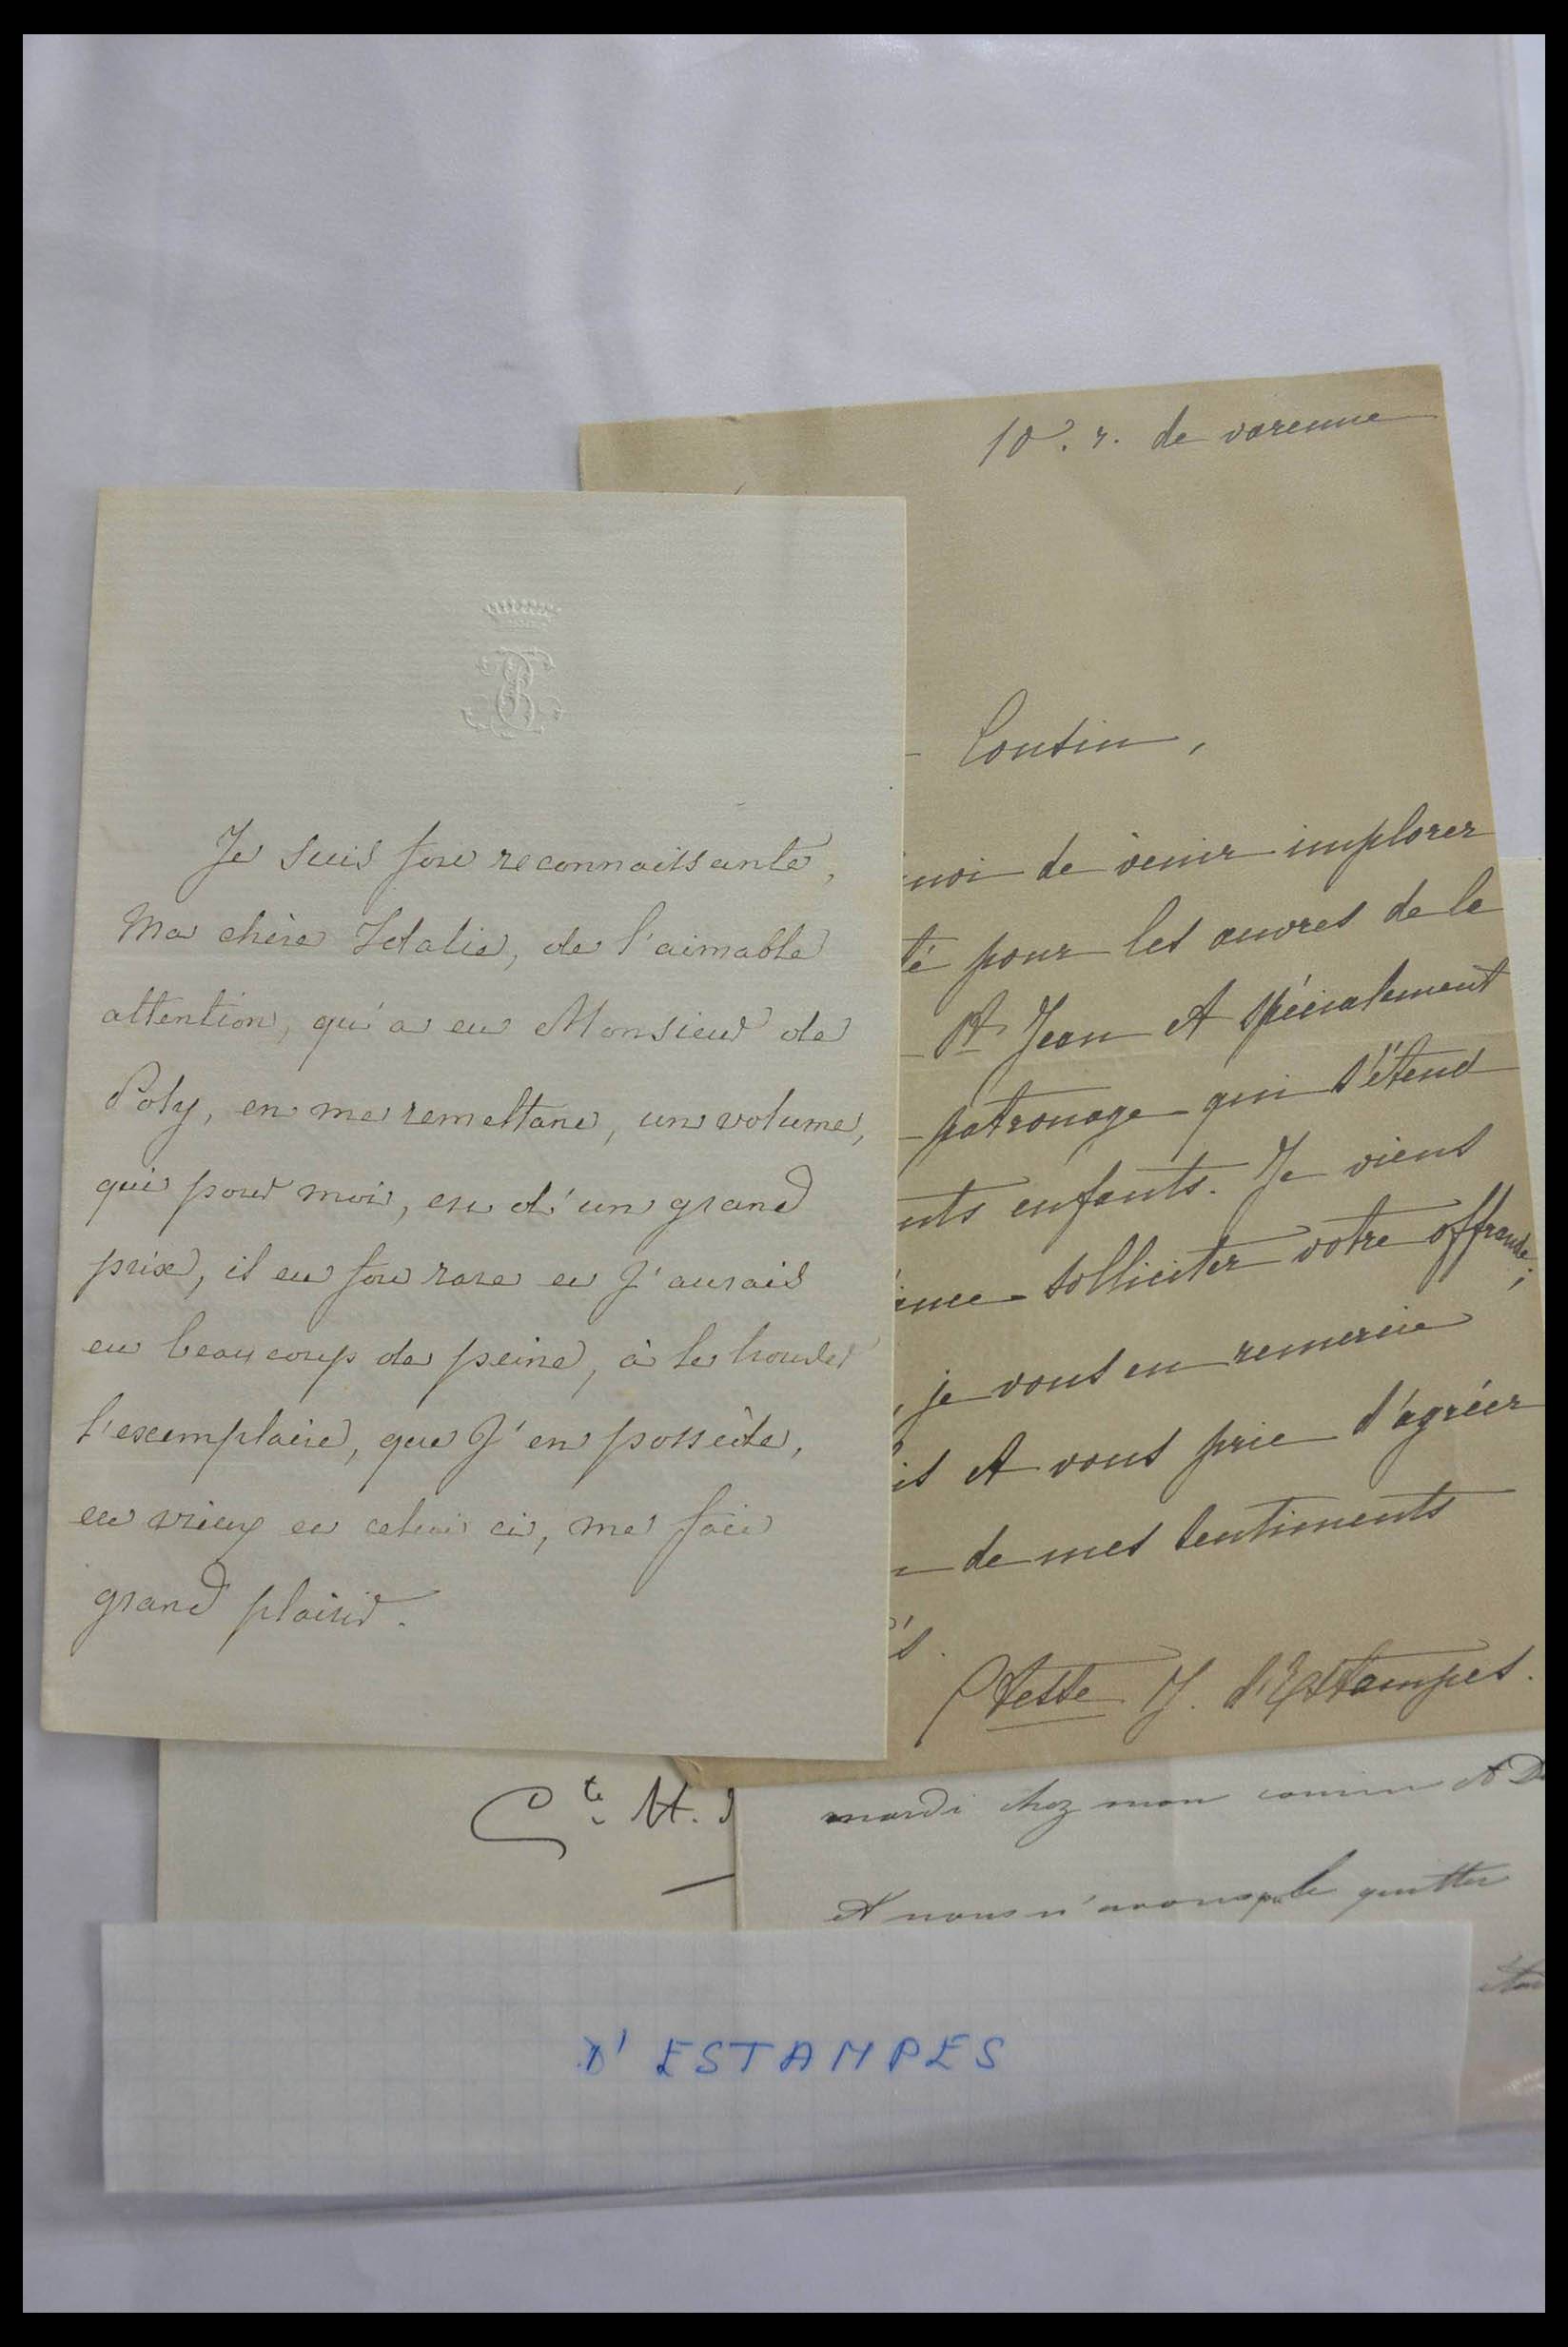 Je suis fort reconnaissante,
Ma chère Idalie, de l'aimable
attention, qu'a eu Monsieur de
Poly, en me remettant, un volume,
qui pour moi, est d'un grand
prix, il est fort rare et J'aurais
eu beaucoup de peine, à le trouver
l'exemplaire, que J'en possède,
est vieux et celui ci, me fait
grand plaisir.
10. r. de varenne
Cousin,
moi de venir implorer
té pour les œuvres de la
St Jean et spécialement
patronage qui s'étend
nts enfants. Je viens
solliciter votre offrande;
je vous en remercie
is et vous prie d'agréer
de mes sentiments
Ctesse J. d'Estampes.
Cte H.
mardi chez mon cousin et
et nous n'avons pu le quitter
D'ESTAMPES